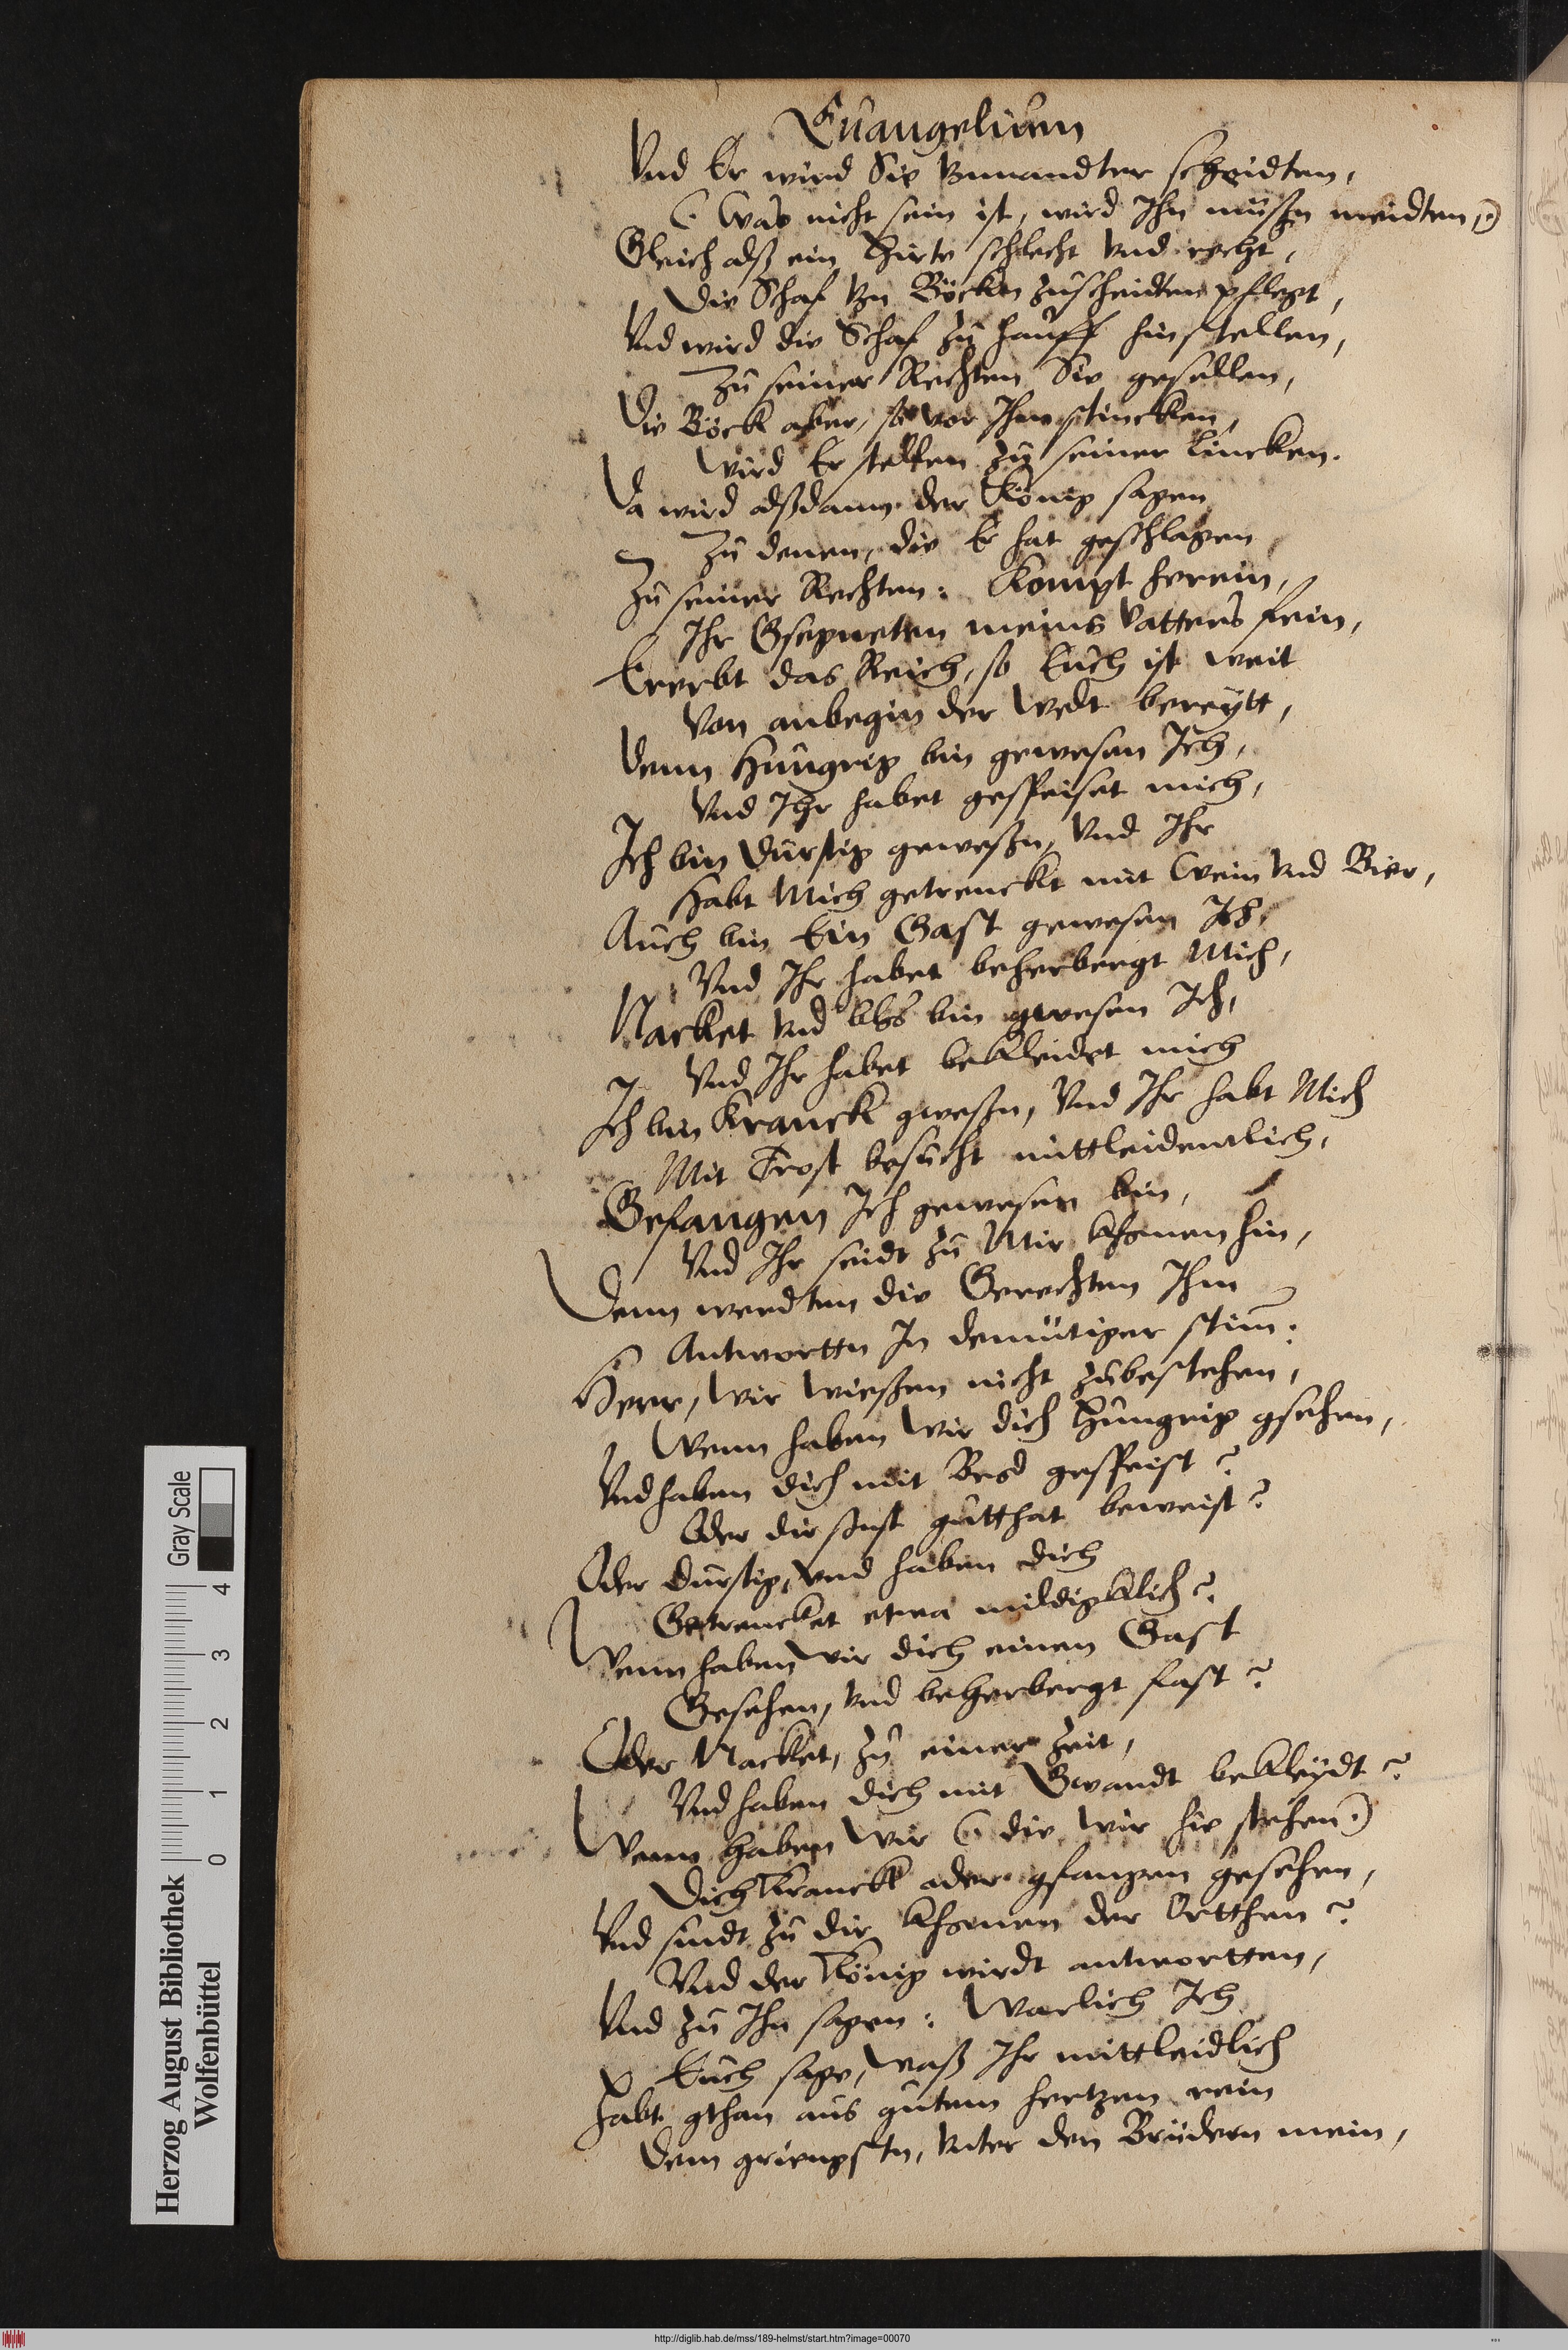 Euangelium
Vnd Er wird Sie vonnandter scheidten,
(. Was nicht sein ist, wird Ihn müßn meidten,.)
Gleich alß ein Hirte schlecht vnd recht,
Die Schaf von Böcken zuscheidten pflegt,
Vnd wird die Schaf zu hauff hinstellen,
Zu seiner Rechten Sie gesellen,
Die Böck aber, so vor Ihm stincken,
Wird Er stellen zu seiner Lincken.
Da wird alßdann der König sagen
Zu denen, die Er hat geschlagen
Zu seiner Rechten: Kompt herein,
Ihr Gsegneten meins Vatters fein,
Ererbt das Reich, so Euch ist weit
Von anbegin der Welt bereytt,
Denn Hungrig bin gewesen Ich,
Vnd Ihr habet gespeiset mich,
Ich bin Durstig geweßn, Vnd Ihr
Habt Mich getrenckt mit Wein vnd Bier,
Auch bin Ein Gast gewesen Ich,
Vnd Ihr habet beherbergt Mich,
Nacket vnd blos bin gwesen Ich,
Vnd Ihr habet bekleidet mich
Ich bin Kranck gweßn, Vnd Ihr habt Mich
Mit Trost besucht mittleidentlich,
Gefangen Ich gewesen bin,
Vnd Ihr seidt zu Mir khomen hin,
Denn werdten die Gerechten Ihm
Antwortten In demütiger stim:
Herr, Wir wießen nicht zubestehen,
Wenn haben wir dich Hungrig gsehen,
Vnd haben dich mit Brod gespeist?
Oder dir sunst gutthat beweist?
Oder durstig, vnd haben dich
Getrencket etwa mildigklich?
Wenn haben wir dich einen Gast
Gesehen, vnd beherbergt fast?
Oder Nacket, zu einer Zeit,
Vnd haben dich mit Gwandt bekleydt?
Wenn haben Wir (. die wir hie stehen.)
Dich Kranck oder gfangen gesehen,
Vnd sindt zu dir khomen der Ortthen?
Vnd der König wirdt antwortten,
Vnd zu Ihn sagen: Warlich Ich
Euch sage, Waß Ihr mittleidlich
Habt gthan aus gutem hertzen rein
Dem gringstn, Vnter den Brüdern mein,
Herzog August Bibliothek
Wolfenbüttel
0 1 2 3 4
Gray Scale
http://diglib.hab.de/mss/189-helmst/start.htm?image=00070